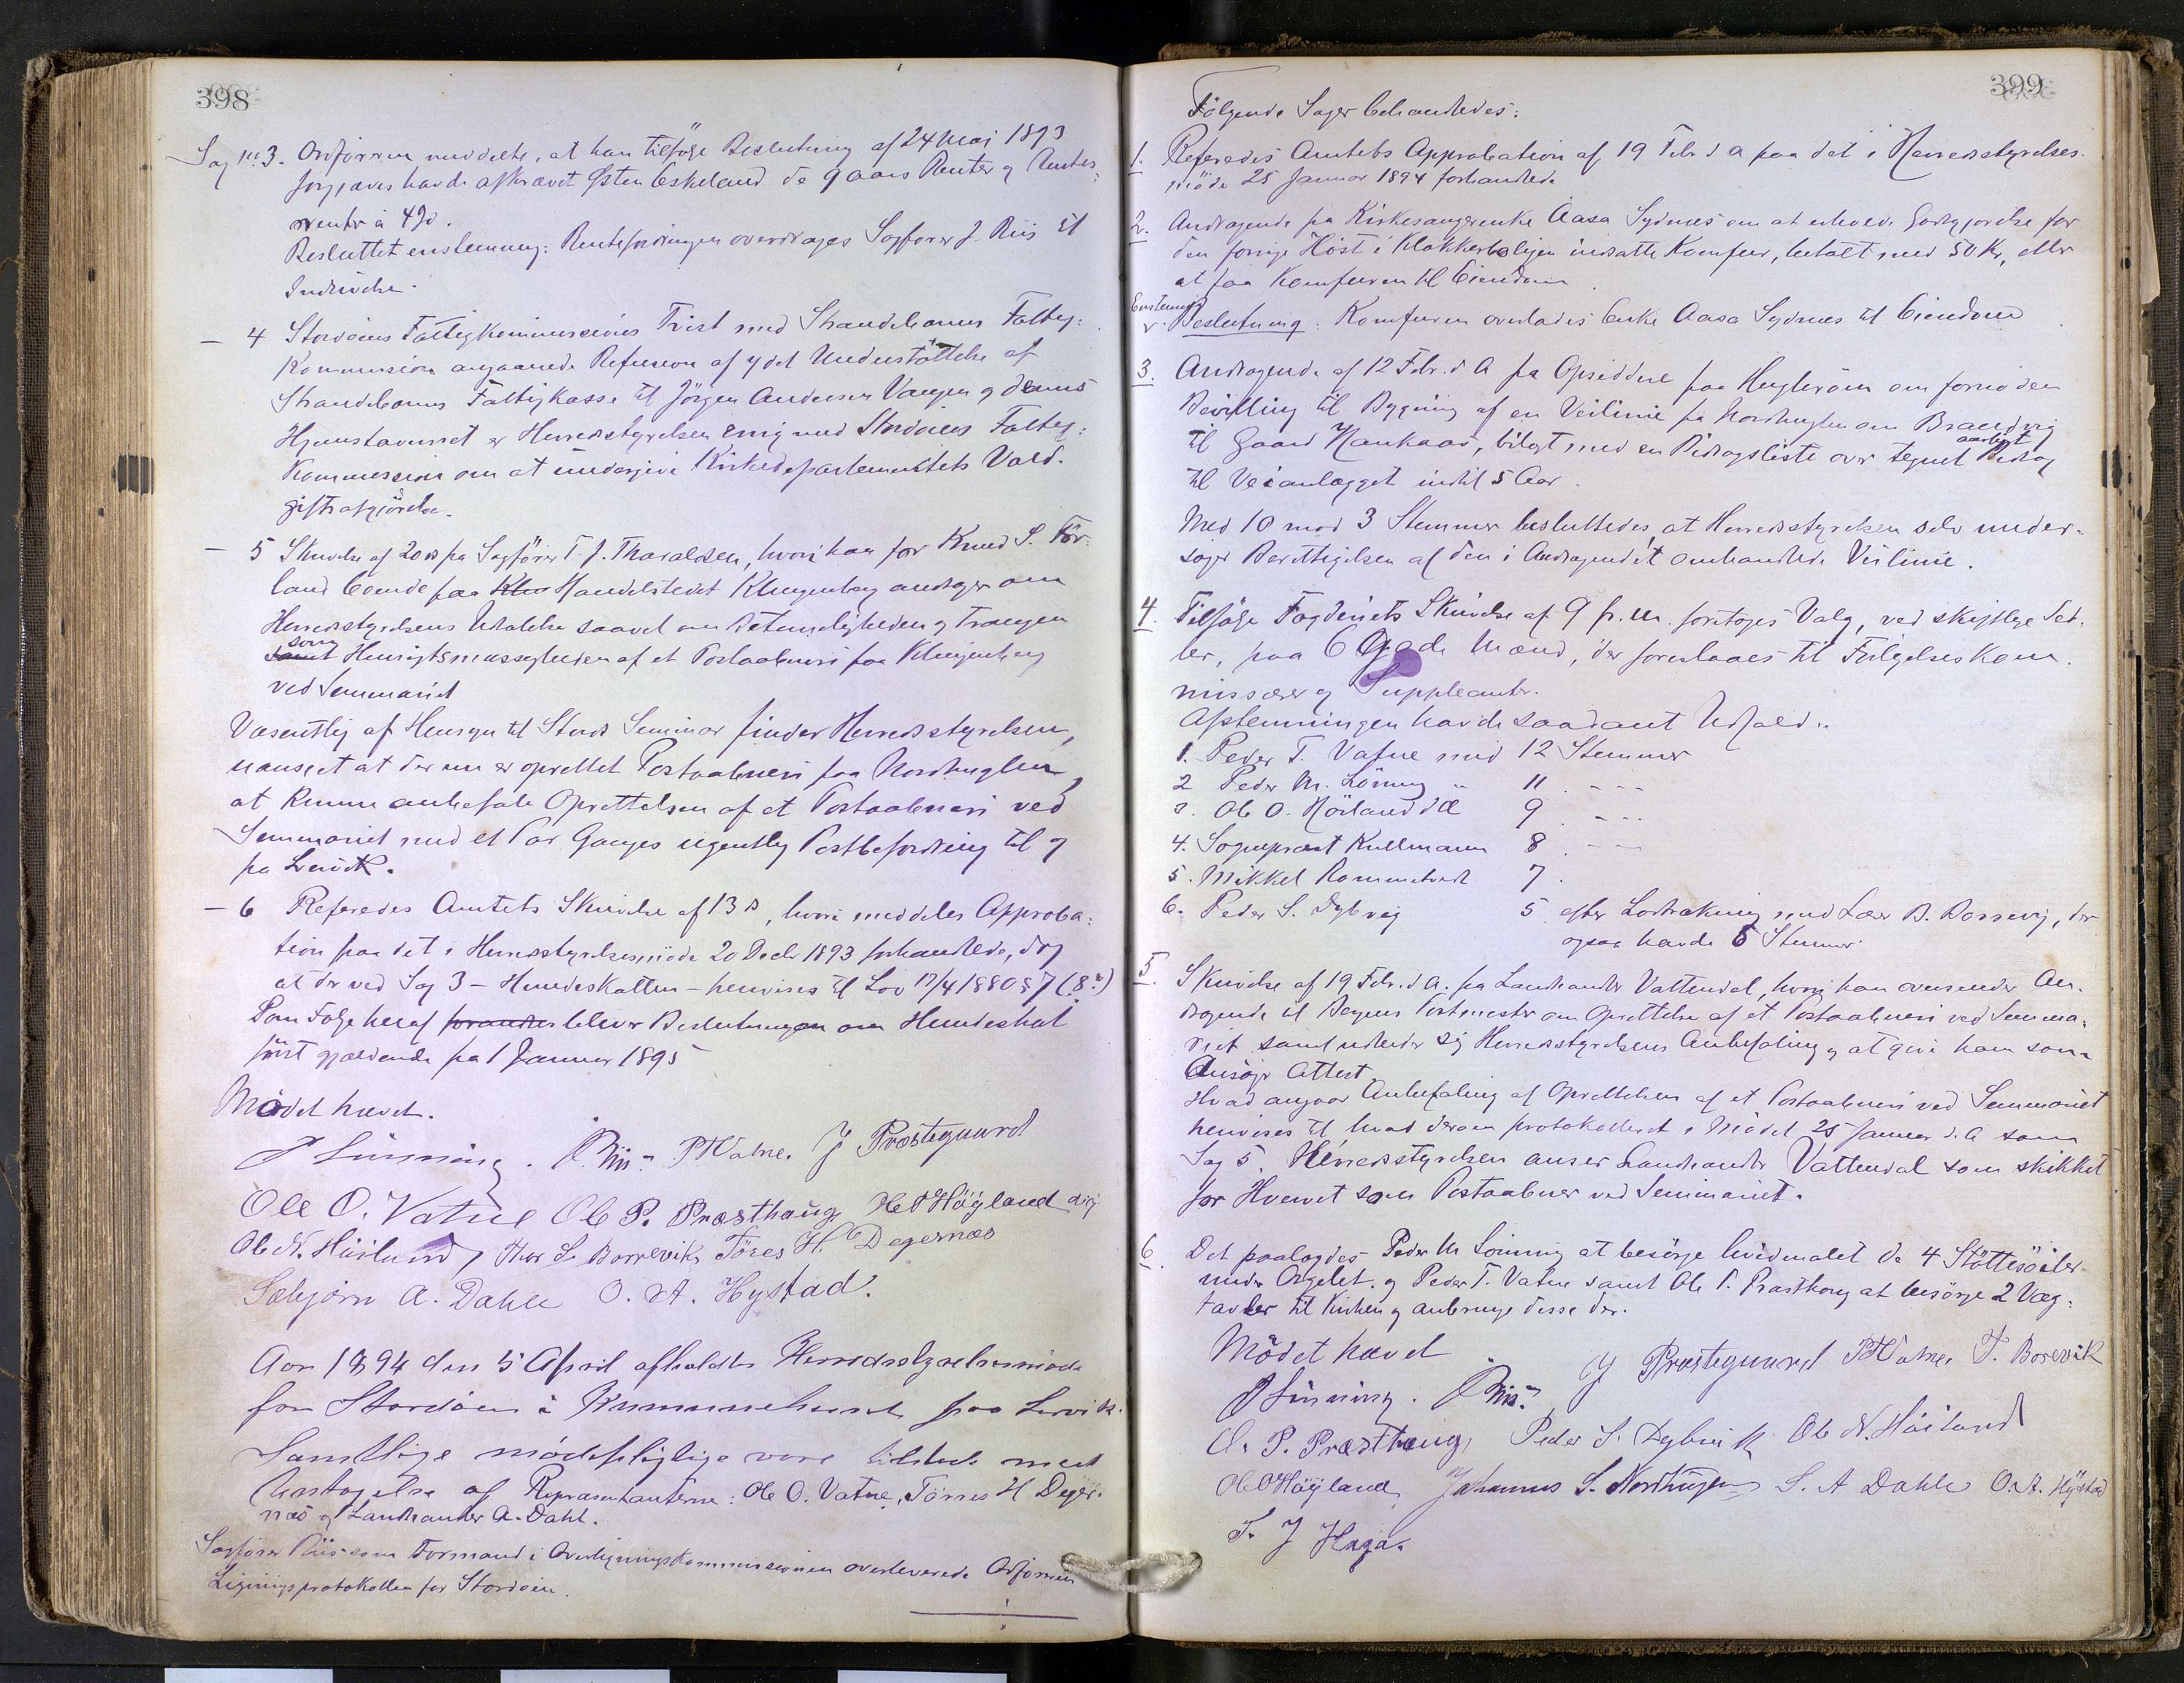 398
Sag No 3. Ordføreren meddelte, at han tilføge Beslutning af 24 Mai 1893
forgjæves havde afkrævet Østen Eskeland de 9 aars Renter og Rentes-
renter à 4%.
Besluttet enstemmig: Rentefordringen overdrages Sagfører J. Riis til
Inddrivelse.
— 4 Stordøens Fattigkommissions Tvist med Strandebarms Fattig-
kommission angaaende Refusion af ydet Understøttelse af
Strandebarms Fattigkasse til Jörgen Andersen Vangen og dennes
Hjemstavnsret er Herredsstyrelsen enig med Stordøens Fattig-
kommission om at undergive Kirkedepartementets Vold-
giftsafgjörelse.
— 5 Skrivelse af 20 ds fra Sagfører T. J. Tharaldsen, hvori han for Knud S. För-
land boende paa Handelstedet Klingenberg andrager om
Herredsstyrelsens Udtalelse saavel om Betimeligheden og Trangen
som Hensigtsmæssigheden af et Postaabneri paa Klingenberg
ved Seminariet
Væsentlig af Hensyn til Stords Seminar finder Herredsstyrelsen,
uanseet at der nu er oprettet Postaabneri paa Nordhuglen,
at kunne anbefale Oprettelsen af et Postaabneri ved
Seminariet med et Par Ganges ugentlig Postbefordring til og
fra Lervik.
— 6 Refereredes Amtets Skrivelse af 13 ds, hvori meddeles Approba-
tion paa det i Herredsstyrelsesmöde 20 Decbr 1893 forhandlede, dog
at der ved Sag 3 – Hundeskatten – henvises til Lov 17/4 1880 § 7 (8de)
Som Følge heraf forandres bliver Beslutningen om Hundeskat
först gjældende fra 1 Januar 1895
Mödet hævet.
P Lönning. J. Riis. P T Vatne. J Præstegaard
Ole O. Vatne Ole P. Præsthaug, Ole O Höyland
Ole N. Höiland, Thor L. Borrevik, Töres H. Degernæs
Sæbjörn A. Dahle O. A. Hystad.
Aar 1894 den 5 April afholdtes Herredsstyrelsesmöde
for Stordöen i Kommunehuset paa Lervik.
Samtlige mödepligtige vare tilstede med
Undtagelse af Repræsentanterne: Ole O. Vatne, Törres H Deger-
næs og Landhandler A. Dahl.
Sagfører Riis som Formand i Overligningskommissionen overleverede Ordføreren
Ligningsprotokollen for Stordøen.
399
Følgende Sager behandledes:
1. Referedes Amtets Approbation af 19 Febr d A paa det i Herredsstyrelses-
möde 25 Januar 1894 forhandlede
2. Andragende fra Kirkesangerenke Aasa Sydnes om at erholde Godtgjørelse for
den forrige Höst i Klokkerboligen indsatte Komfur, betalt med 50 Kr, eller
at faa Komfuren til Eiendom
Enstemmig
Beslutning: Komfuren overlades Enke Aasa Sydnes til Eiendom
3. Andragende af 12 Febr. d A fra Opsiddere paa Huglenöen om fornöden
Bevilling til Bygning af en Veilinie fra Nordhuglen om Brandvig
til Gaard Nankaas, bilagt med en Bidragsliste over tegnet aarligt Bidrag
til Veianlægget indtil 5 Aar.
Med 10 mod 3 Stemmer besluttedes, at Herredsstyrelsen selv under-
söger Berettigelsen af den i Andragendet omhandlede Veilinie.
4. Tilføge Fogderiets Skrivelse af 9 f. M. foretoges Valg, ved skriftlige Sed-
ler, paa 6 Gode Mænd, der foreslaaes til Følgelseskom-
missærer og Suppleanter.
Afstemningen havde saadant Udfald:
1. Peder T. Vatne med 12 Stemmer
2 Peder M. Lönning " 11 - - -
3. Ole O. Höiland dæ 9 - - -
4. Sognepræst Kullmann 8 - - -
5. Mikkel Rommetvedt 7.
6. Peder S. Dybvig 5 efter Lodtrækning med Lær B. Borrevig, der
ogsaa havde 5 Stemmer
5. Skrivelse af 19 Febr. d A. fra Landhandler Vattendal, hvori han oversender An-
dragende til Bergens Postmester om Oprettelse af et Postaabneri ved Semina-
riet samt udbeder sig Herredsstyrelsens Anbefaling og at give ham som
Ansöger Attest
Hvad angaar Anbefaling af Oprettelsen af et Postaabneri ved Seminariet
henvises til hvad derom protokolleret i Mödet 25 Januar d. A som
Sag 5. Herredsstyrelsen anser Landhandler Vattendal som skikket
for Hvervet som Postaabner ved Seminariet.
6. Det paalagdes Peder M Lönning at besörge hvidmalet de 4 Stöttesöiler
under Orgelet, og Peder T. Vatne samt Ole P. Præsthaug at besörge 2 Væg-
tavler til Kirken og anbringe disse der.
Mödet hævet
P Lönning. J. Riis. J Præstegaard P T Vatne. T. Borevik
O. P. Præsthaug, Peder S. Dybvik Ole N. Höiland
Ole O Höyland, Johannes S. Nordhuglen S. A Dahle O. A. Hystad
T. J Haga.